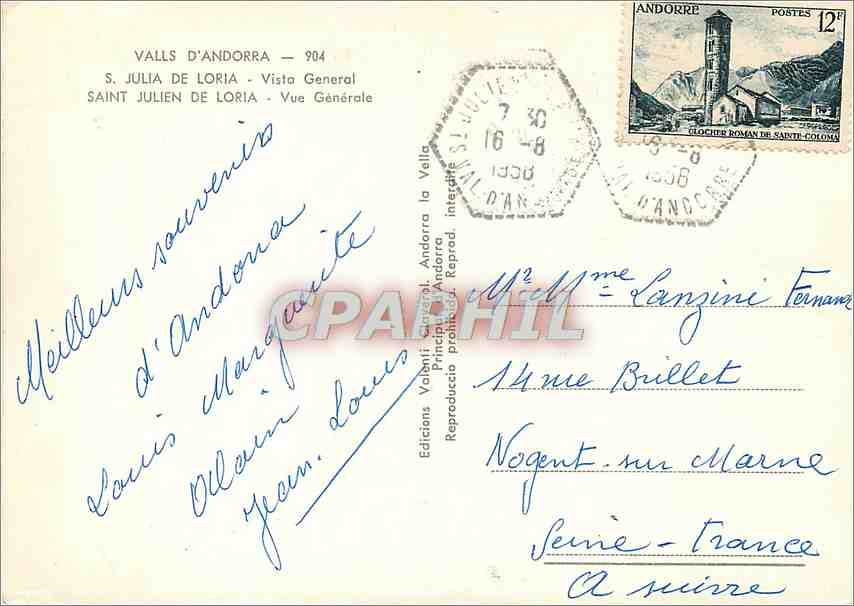 VALLS D'ANDORRA — 904
S. JULIA DE LORIA - Vista General
SAINT JULIEN DE LORIA - Vue Générale
Meilleurs souvenirs
d'Andorra
Louis Marguerite
Alain
Jean. Louis
Edicions Valenti Claverol. Andorra la Vella
Principat d'Andorra
Reproduccio prohibida. Reprad. interdite
CPARHIL
ANDORRE POSTES 12F
CLOCHER ROMAN DE SAINTE-COLOMA
ST JULIEN
7 30
16 -8
1958
VAL D'AN
-8
1958
VAL D'ANDORRE
Mr Mme Lanzini Fernand
14 rue Brillet
Nogent-sur Marne
Seine - France
A suivre